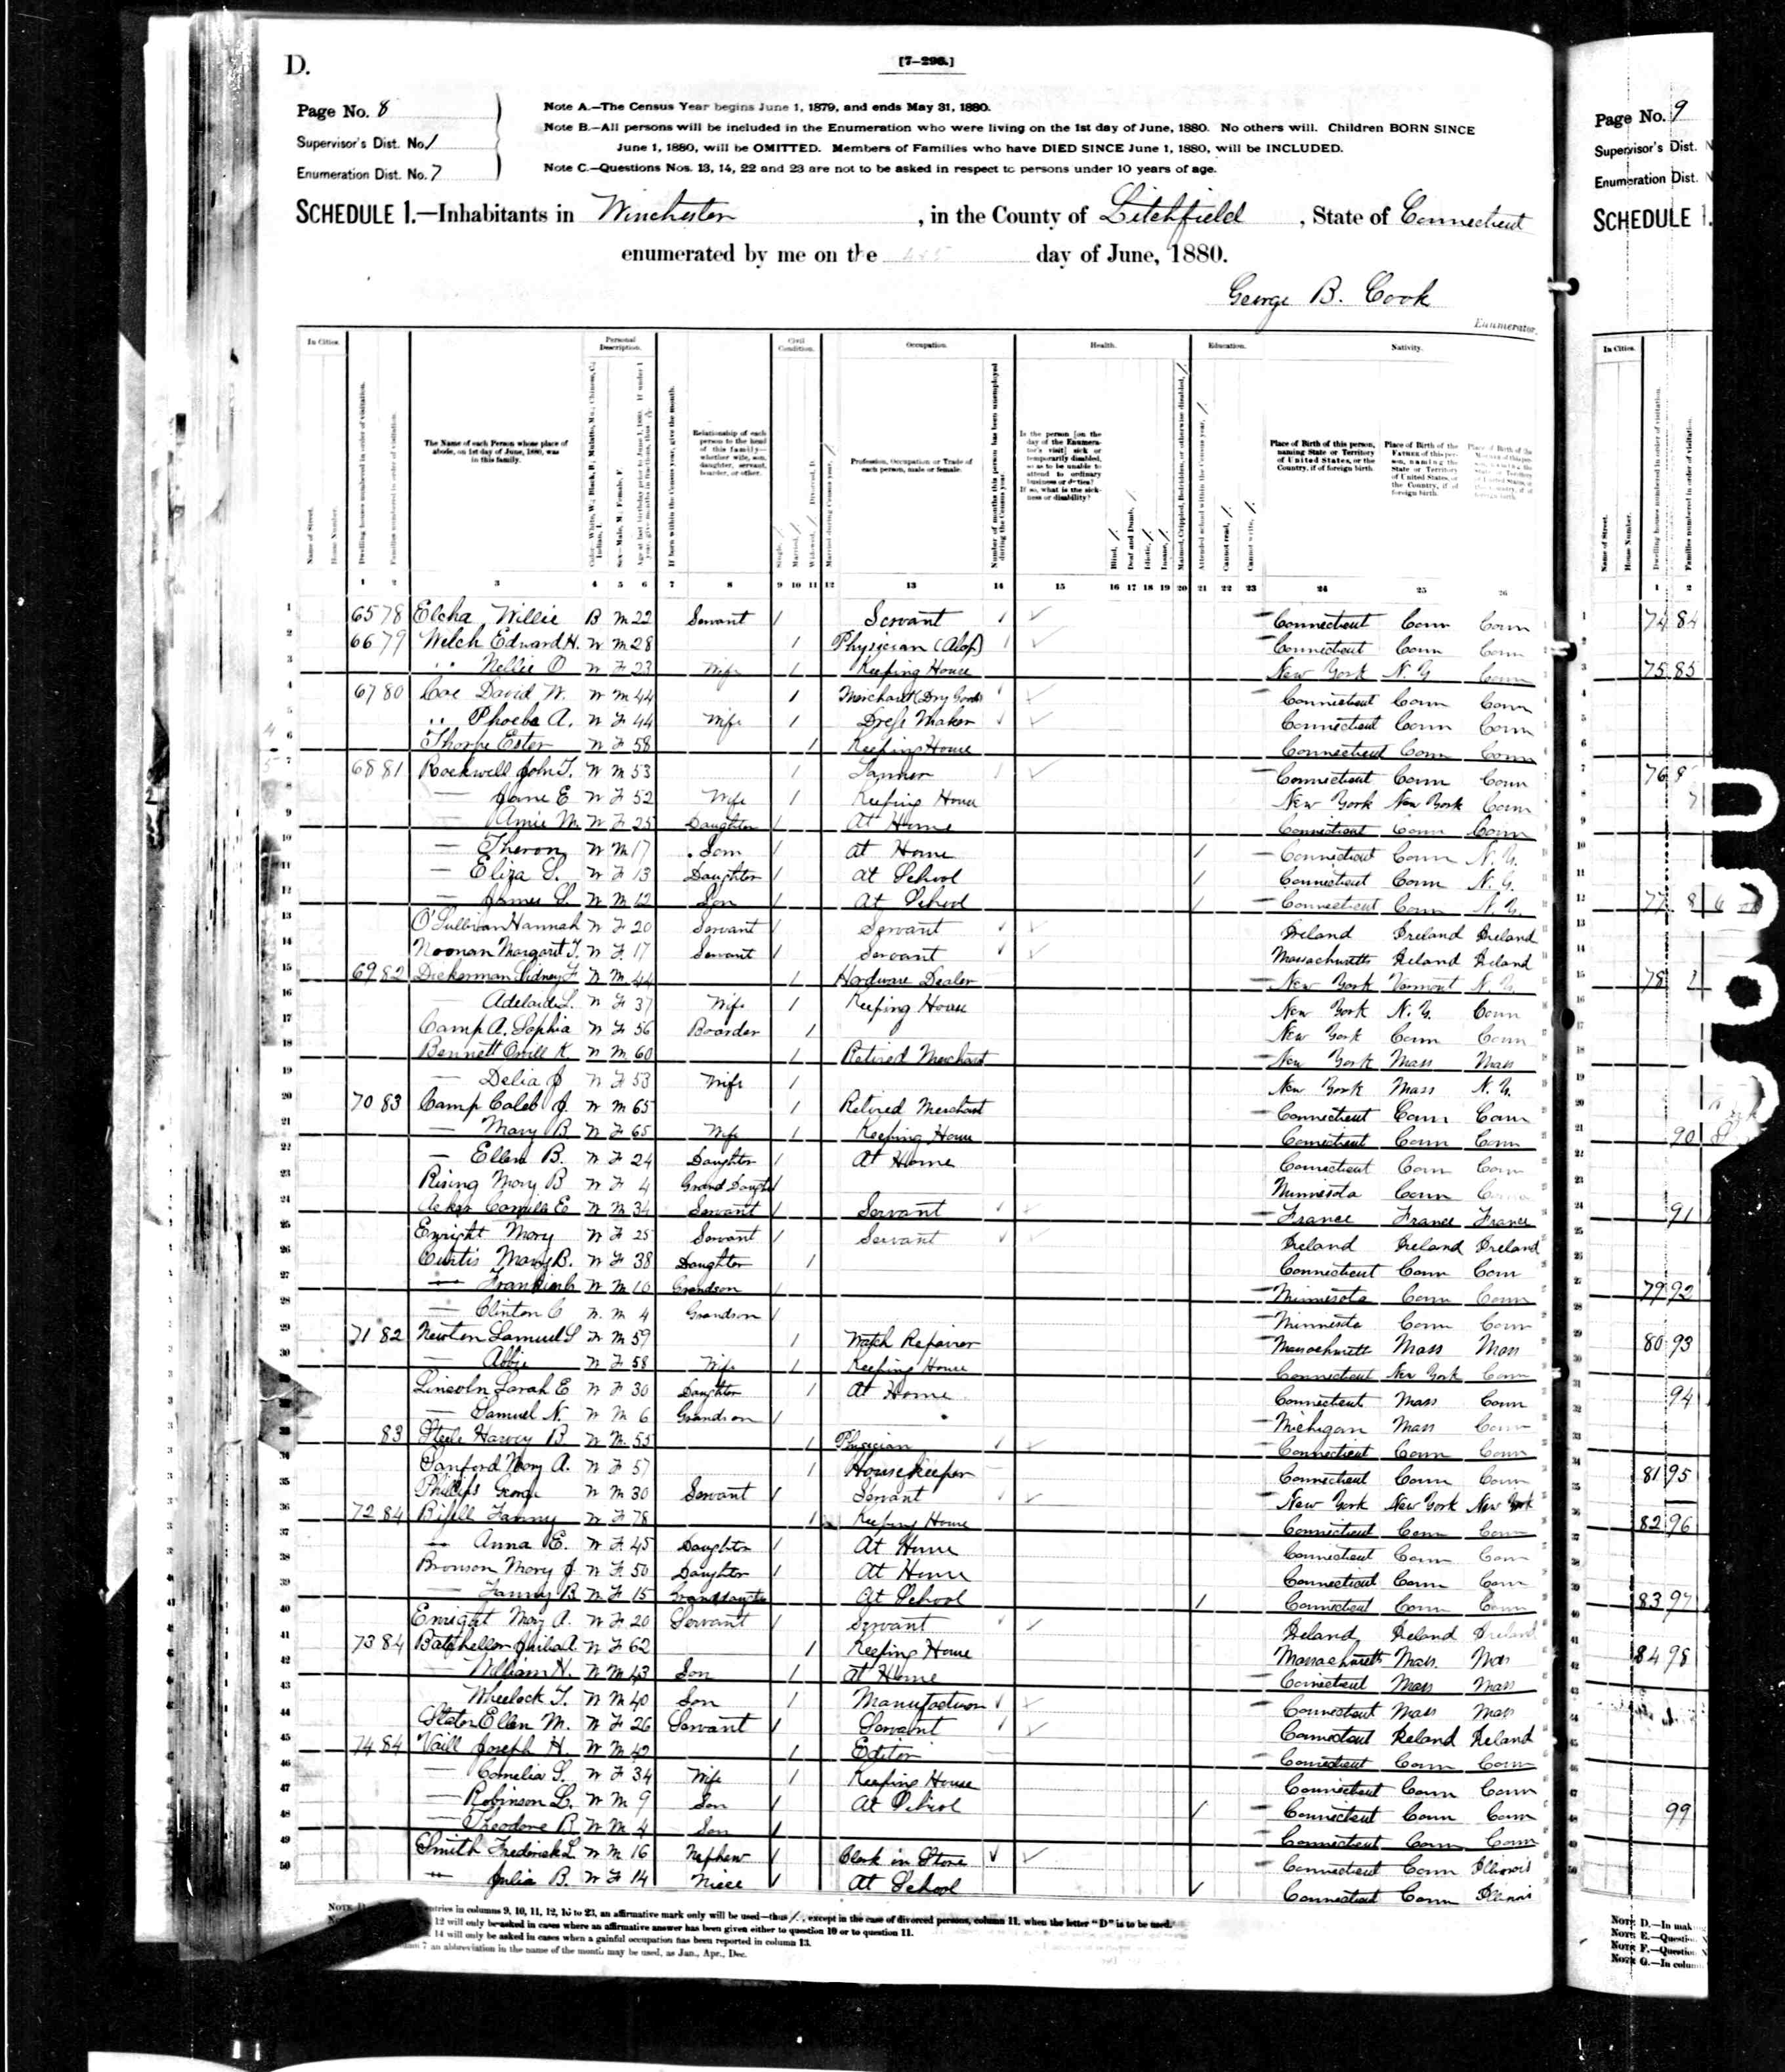 D.
[7-296.]
Page No. 8
Supervisor's Dist. No. 1
Enumeration Dist. No. 7
Note A.—The Census Year begins June 1, 1879, and ends May 31, 1880.
Note B.—All persons will be included in the Enumeration who were living on the 1st day of June, 1880. No others will. Children BORN SINCE
June 1, 1880, will be OMITTED. Members of Families who have DIED SINCE June 1, 1880, will be INCLUDED.
Note C.—Questions Nos. 13, 14, 22 and 23 are not to be asked in respect to persons under 10 years of age.
SCHEDULE 1.—Inhabitants in Winchester, in the County of Litchfield, State of Connecticut
enumerated by me on the day of June, 1880.
George B. Cook
Enumerator.
In Cities. Personal Description. Civil Condition. Occupation. Health. Education. Nativity.
Name of Street. House Number. Dwelling houses numbered in order of visitation. Families numbered in order of visitation.
The Name of each Person whose place of abode, on 1st day of June, 1880, was in this family.
Relationship of each person to the head of this family—whether wife, son, daughter, servant, boarder, or other.
Profession, Occupation or Trade of each person, male or female.
Place of Birth of this person, naming State or Territory of United States, or the Country, if of foreign birth.
1 2 3 4 5 6 7 8 9 10 11 12 13 14 15 16 17 18 19 20 21 22 23 24 25 26
1 65 78 Elcha Willie B M 22 Servant / Servant Connecticut Conn Conn
2 66 79 Welch Edward H. W M 28 / Physician Connecticut Conn Conn
3 " Nellie O W F 23 Wife / Keeping House New York N.Y. Conn
4 67 80 Coe David W. W M 44 / Merchant (Dry Goods) Connecticut Conn Conn
5 " Phoebe A. W F 44 Wife / Dress Maker Connecticut Conn Conn
6 Thorpe Ester W F 58 / Keeping House Connecticut Conn Conn
7 68 81 Rockwell John T. W M 53 / Tanner Connecticut Conn Conn
8 — Jane E W F 52 Wife / Keeping House New York New York Conn
9 — Amie M. W F 25 Daughter / At Home Connecticut Conn Conn
10 — Theron W M 17 Son / At Home / Connecticut Conn N.Y.
11 — Eliza S. W F 13 Daughter / At School / Connecticut Conn N.Y.
12 — James S. W M 12 Son / At School / Connecticut Conn N.Y.
13 O'Sullivan Hannah W F 20 Servant / Servant Ireland Ireland Ireland
14 Noonan Margaret T. W F 17 Servant / Servant Massachusetts Ireland Ireland
15 69 82 Dickerman Sidney F W M 44 / Hardware Dealer New York Vermont N.Y.
16 Adelaide L. W F 37 Wife / Keeping House New York N.Y. Conn
17 Camp A. Sophia W F 56 Boarder / New York Conn Conn
18 Bennett Orrill K. W M 60 / Retired Merchant New York Mass Mass
19 — Delia J W F 53 Wife / New York Mass N.Y.
20 70 83 Camp Caleb J. W M 65 / Retired Merchant Connecticut Conn Conn
21 — Mary B W F 65 Wife / Keeping House Connecticut Conn Conn
22 — Ellen B. W F 24 Daughter / At Home Connecticut Conn Conn
23 Rising Mary B W F 4 Grand Daughter Minnesota Conn
24 W M 34 Servant / Servant France France France
25 Enright Mary W F 25 Servant / Servant Ireland Ireland Ireland
26 Curtis Mary B. W F 38 Daughter / Connecticut Conn Conn
27 — W M 10 Grandson Minnesota Conn Conn
28 — Clinton C W M 4 Grandson / Minnesota Conn Conn
29 71 82 Newton Samuel S W M 59 / Watch Repairer Massachusetts Mass Mass
30 — Abbie W F 58 Wife / Keeping House Connecticut New York Conn
31 Lincoln Sarah E W F 30 Daughter / At Home Connecticut Mass Conn
32 — Samuel N. W M 6 Grandson / Michigan Mass Conn
33 83 Steele Harvey B W M 55 / Physician Connecticut Conn Conn
34 Sanford Mary A. W F 57 / Housekeeper Connecticut Conn Conn
35 Phillips George W M 30 Servant / Servant New York New York New York
36 72 84 Bissell Fanny W F 78 / Keeping House Connecticut Conn Conn
37 " Anna E. W F 45 Daughter / At Home Connecticut Conn Conn
38 Bronson Mary J. W F 50 Daughter / At Home Connecticut Conn Conn
39 — Fanny B W F 15 Granddaughter At School / Connecticut Conn Conn
40 Enright Mary A. W F 20 Servant / Servant Ireland Ireland Ireland
41 73 84 Batchellor Julia A. W F 62 / Keeping House Massachusetts Mass. Mass
42 — William H. W M 43 Son / At Home Connecticut Mass Mass
43 Wheelock T. W M 40 Son / Manufacturer Connecticut Mass Mass
44 Slater Ellen M. W F 26 Servant / Servant Connecticut Ireland Ireland
45 74 84 Vaill Joseph H. W M 42 / Editor Connecticut Conn Conn
46 — Cornelia S. W F 34 Wife / Keeping House Connecticut Conn Conn
47 — Robinson L. W M 9 Son / At School / Connecticut Conn Conn
48 — Theodore B W M 4 Son / Connecticut Conn Conn
49 Smith Frederick L W M 16 Nephew / Clerk in Store Connecticut Conn Illinois
50 " Julia B. W F 14 Niece / At School / Connecticut Conn Illinois
entries in columns 9, 10, 11, 12, 16 to 23, an affirmative mark only will be used—thus /, except in the case of divorced persons, column 11, when the letter "D" is to be used.
12 will only be asked in cases where an affirmative answer has been given either to question 10 or to question 11.
14 will only be asked in cases when a gainful occupation has been reported in column 13.
7 an abbreviation in the name of the month may be used, as Jan., Apr., Dec.
Page No. 9
Supervisor's Dist.
Enumeration Dist.
SCHEDULE 1.
In Cities.
74 84
75 85
79 92
80 93
94
81 95
82 96
83 97
84 98
99
Note D.—In mak
Note E.—Questi
Note F.—Questio
Note G.—In colum